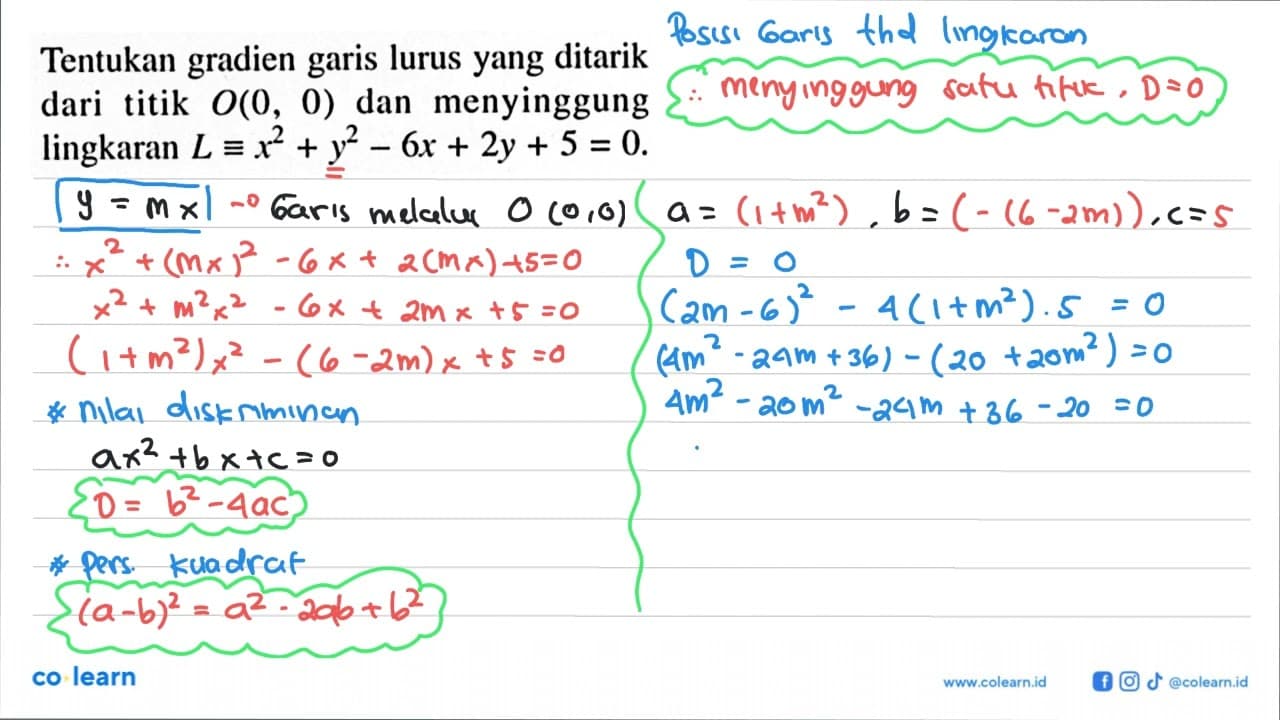 Tentukan gradien garis lurus yang ditarik
dari titik O(0, 0) dan menyinggung
lingkaran L ≡ x² + y² – 6x + 2y + 5 = 0.
Posisi Garis thd lingkaran
∴ menyinggung satu titik, D=0
y = mx → Garis melalui O (0,0)
∴ x² + (mx)² - 6x + 2(mx)+5=0
x² + m²x² - 6x + 2mx +5=0
(1+m²)x² - (6-2m)x +5=0
* nilai diskriminan
ax²+bx+c=0
D= b²-4ac
* Pers. kuadrat
(a-b)² = a² - 2ab + b²
a = (1+m²), b = (-(6-2m)), c=5
D = 0
(2m-6)² - 4(1+m²).5 = 0
(4m² - 24m + 36) - (20 + 20m²) = 0
4m² - 20m² - 24m + 36 - 20 = 0
co learn
www.colearn.id
@colearn.id